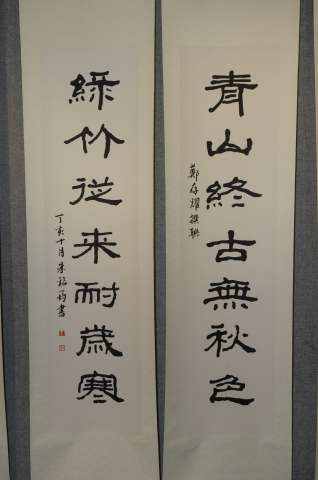 青山終古無秋色
鄭存耀撰聯
綠竹從來耐歲寒
丁亥十月李福筠書